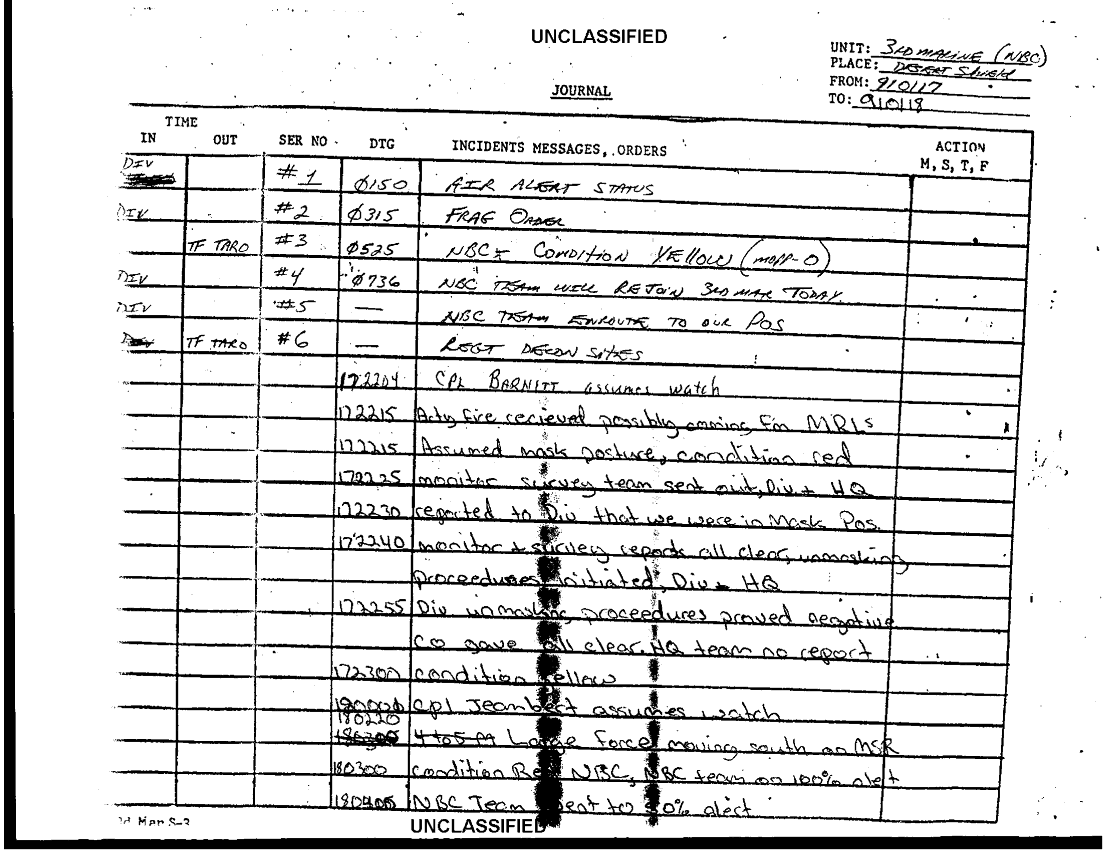 UNCLASSIFIED
UNIT: 3rd MARINE (NBC)
PLACE: DESERT SHIELD
FROM: 910117
TO: 910118
JOURNAL
TIME
IN OUT SER NO DTG INCIDENTS MESSAGES, ORDERS ACTION
M, S, T, F
DIV #1 Ø150 AIR ALERT STATUS
DIV #2 Ø315 FRAG ORDER
TF TARO #3 Ø525 NBC CONDITION YELLOW (MOPP-O)
DIV #4 Ø736 NBC TEAM WILL REJOIN 3RD MAR TODAY
DIV #5 — NBC TEAM ENROUTE TO OUR POS
TF TARO #6 — REGT DECON SITES
172204 CPL BARNITT assumes watch
172215 Arty fire recieved possibly coming fm MRLs
172215 Assumed mask posture, condition red
172225 monitor survey team sent out, Div + HQ
172230 reported to Div that we were in Mask Pos.
172240 monitor + survey reports all clear, unmasking
proceedures initiated, Div + HQ
172255 Div unmasking proceedures proved negative
CO gave all clear. HQ team no report
172300 condition yellow
Cpl Jeambest assumes watch
180220
4 to 5 M Large Force moving south on MSR
180300 condition Red NBC, NBC team on 100% alert
NBC Team sent to 50% alert
3d Mar S-3
UNCLASSIFIED